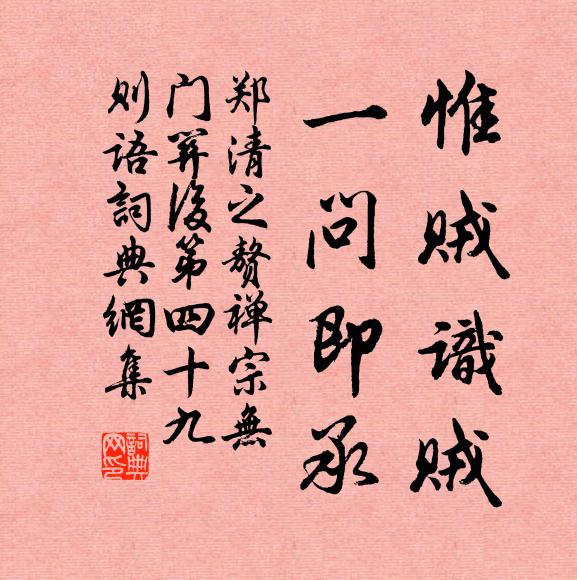 惟贼識贼
一问即承
郑清之赘禅宗無
门関後第四十九
则语詞典網集
詞典网印